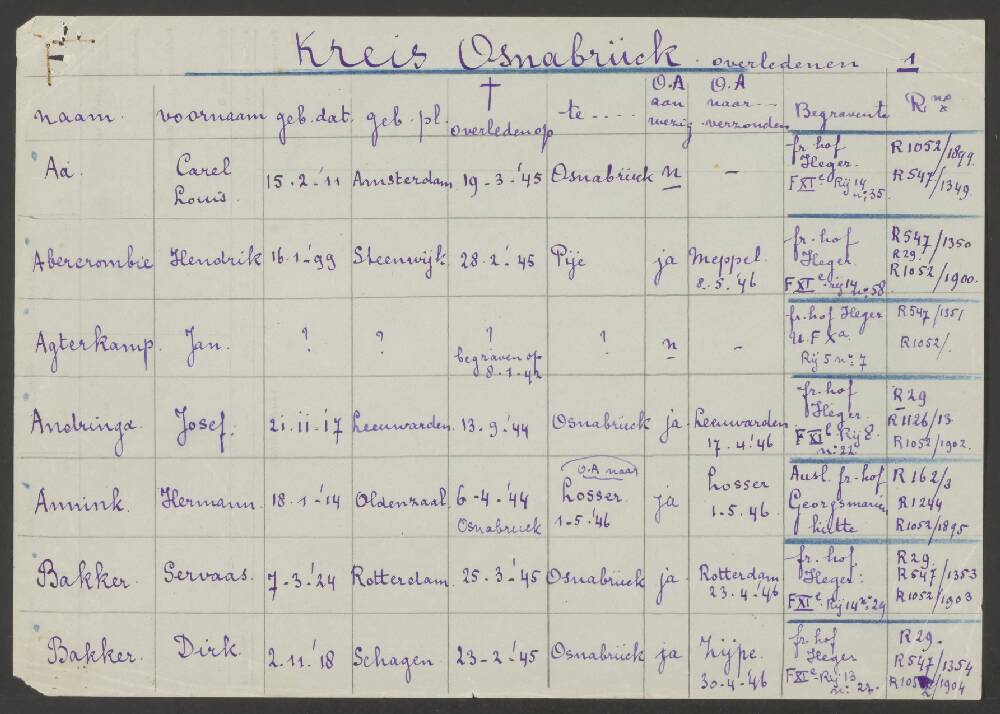 Kreis Osnabrück overledenen 1
naam. voornaam geb.dat. geb.pl. † overleden op te ---- O.A aan wezig O.A naar--- verzonden Begraven te R no x
Aa Carel Louis. 15.2-'11 Amsterdam. 19-3-'45 Osnabrück n -
fr.hof Heger. F XI e Rij 14 n: 35. R1052/1899. R547/1349
Abercrombie Hendrik 16.1-'99 Steenwijk. 28.2-'45 Pije ja Meppel. 2.5.'46
fr.hof Heger. F XI e. rij 14 no: 58. R547/1350 R29. R1052/1900.
Agterkamp. Jan. ? ? ? begraven op 8-1-42 ? n -
fr.hof Heger U.F X a. Rij 5 n: 7 R547/1351 R1052/.
Andringa Josef. 21.11-'17 Leeuwarden. 13-9-'44 Osnabrück ja. Leeuwarden 17.4.'46
fr.hof Heger. F XI b. Rij 8. n: 22 R29 R1126/13 R1052/1902.
Annink. Hermann. 18.1-'14 Oldenzaal 6-4-'44 Osnabrück O.A naar Losser. 1-5.'46 ja Losser 1-5.'46.
Ausl. fr.hof Georgsmarien hütte R162/3 R1244 R1052/1895
Bakker. Servaas. 7-3-'24 Rotterdam. 25.3-'45 Osnabrück ja. Rotterdam 23.4-'46
fr.hof Heger: F XI e. Rij 14 n: 29 R29. R547/1353 R1052/1903
Bakker. Dirk. 2.11.'18 Schagen. 23-2-'45 Osnabrück ja Zijpe. 30-4-'46
fr.hof Heger F XI e. Rij 13 n: 27. R29. R547/1354 R1052/1904